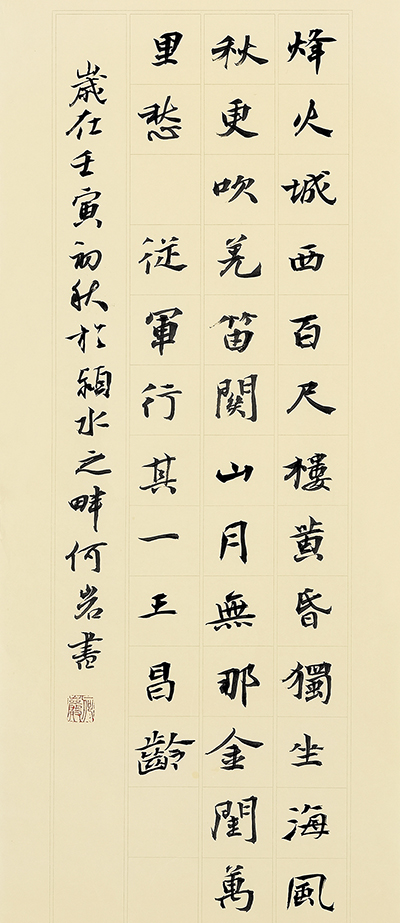 烽火城西百尺樓黄昏獨坐海風
秋更吹羌笛關山月無那金閨萬
里愁 従軍行其一王昌齡
歲在壬寅初秋於潁水之畔何岩書